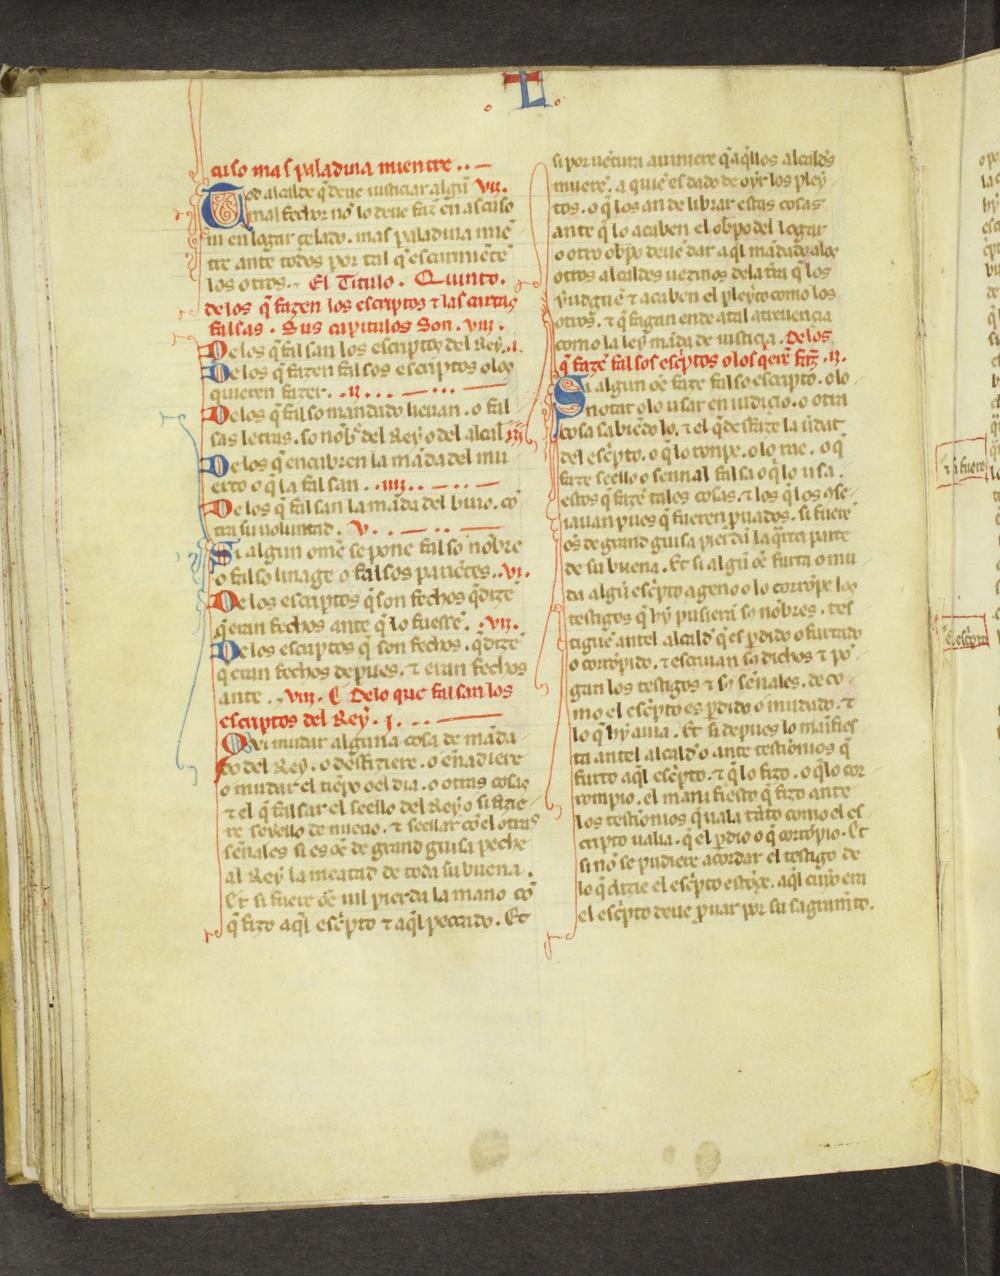 L
cuso mas paladina mientre
Tod alcalde q̃ deue iusticiar algũ vii.
mal fechor no lo deue faz̃ en ascuso
ni en logar çelado. mas paladina miẽ
tre ante todos por tal q̃ escarmiẽte
los otros. El Titulo. Quinto.
delos q̃ fazen los escriptos ⁊ las cartas
falsas. Sus capitulos Son. viii.
De los q̃ falsan los escriptos del Rey. .i.
De los q̃ fazen falsos escriptos olos
quieren fazer. .ii.
De los q̃ falso mandado lieuan. o fal
sas letras. so nõb̃ del Rey o del alcal iii
De los q̃ encubren la mãda del mu
erto o q̃ la falsan. .iiii.
De los q̃ falsan la mãda del biuo. cõ
tra su voluntad. V.
Si algun ome se pone falso nõbre
o falso linage o falsos pariẽtes. .vi.
De los escriptos q̃ son fechos q̃ dizẽ
q̃ eran fechos ante q̃ lo fuesse. .vii.
De los escriptos q̃ son fechos. q̃ dizẽ
q̃ eran fechos depues. ⁊ eran fechos
ante. .viii. ¶ Delo que falsan los
escriptos del Rey. .i.
Qvi mudar alguna cosa de mãda
do del Rey. o desfiziere. o eñadiere
o mudar el tiẽpo o el dia. o otras cosas
⁊ el q̃ falsar el seello del Rey o si fizie
re seyello de nueuo. ⁊ seellar cõ el otras
señales si es oẽ de grand guisa peche
al Rey la meatad de toda su buena.
Et si fuere oẽ uil pierda la mano cõ
q̃ fizo aq̃l esc̃pto ⁊ aq̃l peccado. Et
si por uẽtura auiniere q̃ aq̃llos alcaldes
muerẽ. a quiẽ es dado de oyr los pley
tos. o q̃ los an de librar estas cosas
ante q̃ lo acaben el obp̃o del logar
o otro obp̃o deue dar a q̃l mãdado alos
otros alcaldes uezinos dela tr̃a q̃ los
yudguẽ ⁊ acaben el pleyto como los
otros. ⁊ q̃ fagan ende atal atreuencia
como la ley mãda de iusticia. De los
q̃ fazẽ falsos esc̃ptos o los q̃erẽ faz̃. .ii.
Si algun oẽ faze falso escripto. o lo
notar o lo usar en iudicio. o otra
cosa sabiẽdo lo. ⁊ el q̃ desfaze la ũdat
del esc̃pto. o q̃ lo ronpe. o lo rae. o q̃
faze seello o sennal falsa o q̃ lo usa.
estos q̃ fazẽ tales cosas. ⁊ los q̃ los ꝯse
iauan pues q̃ fueren puados. si fuerẽ
oẽs de grand guisa pierdã la q̃rta parte
de su buena. Et si algũ oẽ furta o mu
da algũ esc̃pto ageno o lo corrõpe los
testigos q̃ hy pusierã so nõbres. tes
tiguẽ antel alcald̃ q̃ es p̃dido o furtado
o corrõpido. ⁊ escriuan sꝰ dichos ⁊ põ
gan los testigos ⁊ sꝰ señales. de co
mo el esc̃pto es p̃dido o mudado. ⁊
lo q̃ hy auia. Et si depues lo mañfies
ta antel alcald̃ o ante testimonios q̃
furto aq̃l esc̃pto. ⁊ q̃ lo fizo. o q̃ lo cor
rompio. el manifiesto q̃ fizo ante
los testimonios q̃ uala tãto como el es
cripto ualia. q̃ el p̃dio o q̃ corrõpio. Et
si nõ se pudiere acordar el testigo de
lo q̃ dizie el esc̃pto estõçe. aq̃l cuyo era
el esc̃pto deue p̃uar por su sagramẽto.